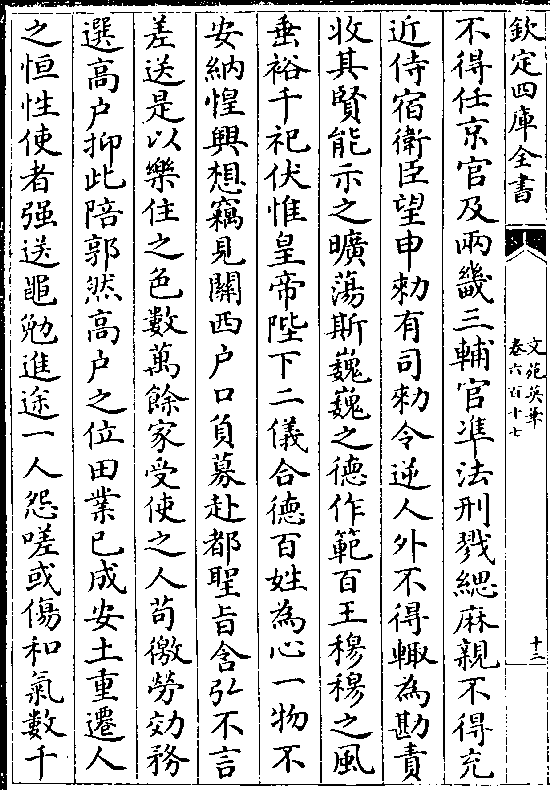 欽定四庫全書
文苑英華
卷六百十七
十三
不得任京官及兩畿三輔官凖法刑戮緦麻親不得充
近侍宿衛臣望申勅有司勅令逆人外不得輙為勘責
收其賢能示之曠蕩斯巍巍之德作範百王穆穆之風
垂裕千祀伏惟皇帝陛下二儀合徳百姓為心一物不
安納惶興想竊見關西户口負募赴都聖旨含弘不言
差送是以樂住之色數萬餘家受使之人苟徼勞効務
選高户抑此陪郭然高户之位田業已成安土重遷人
之恒性使者强送黽勉進途一人怨嗟或傷和氣數千